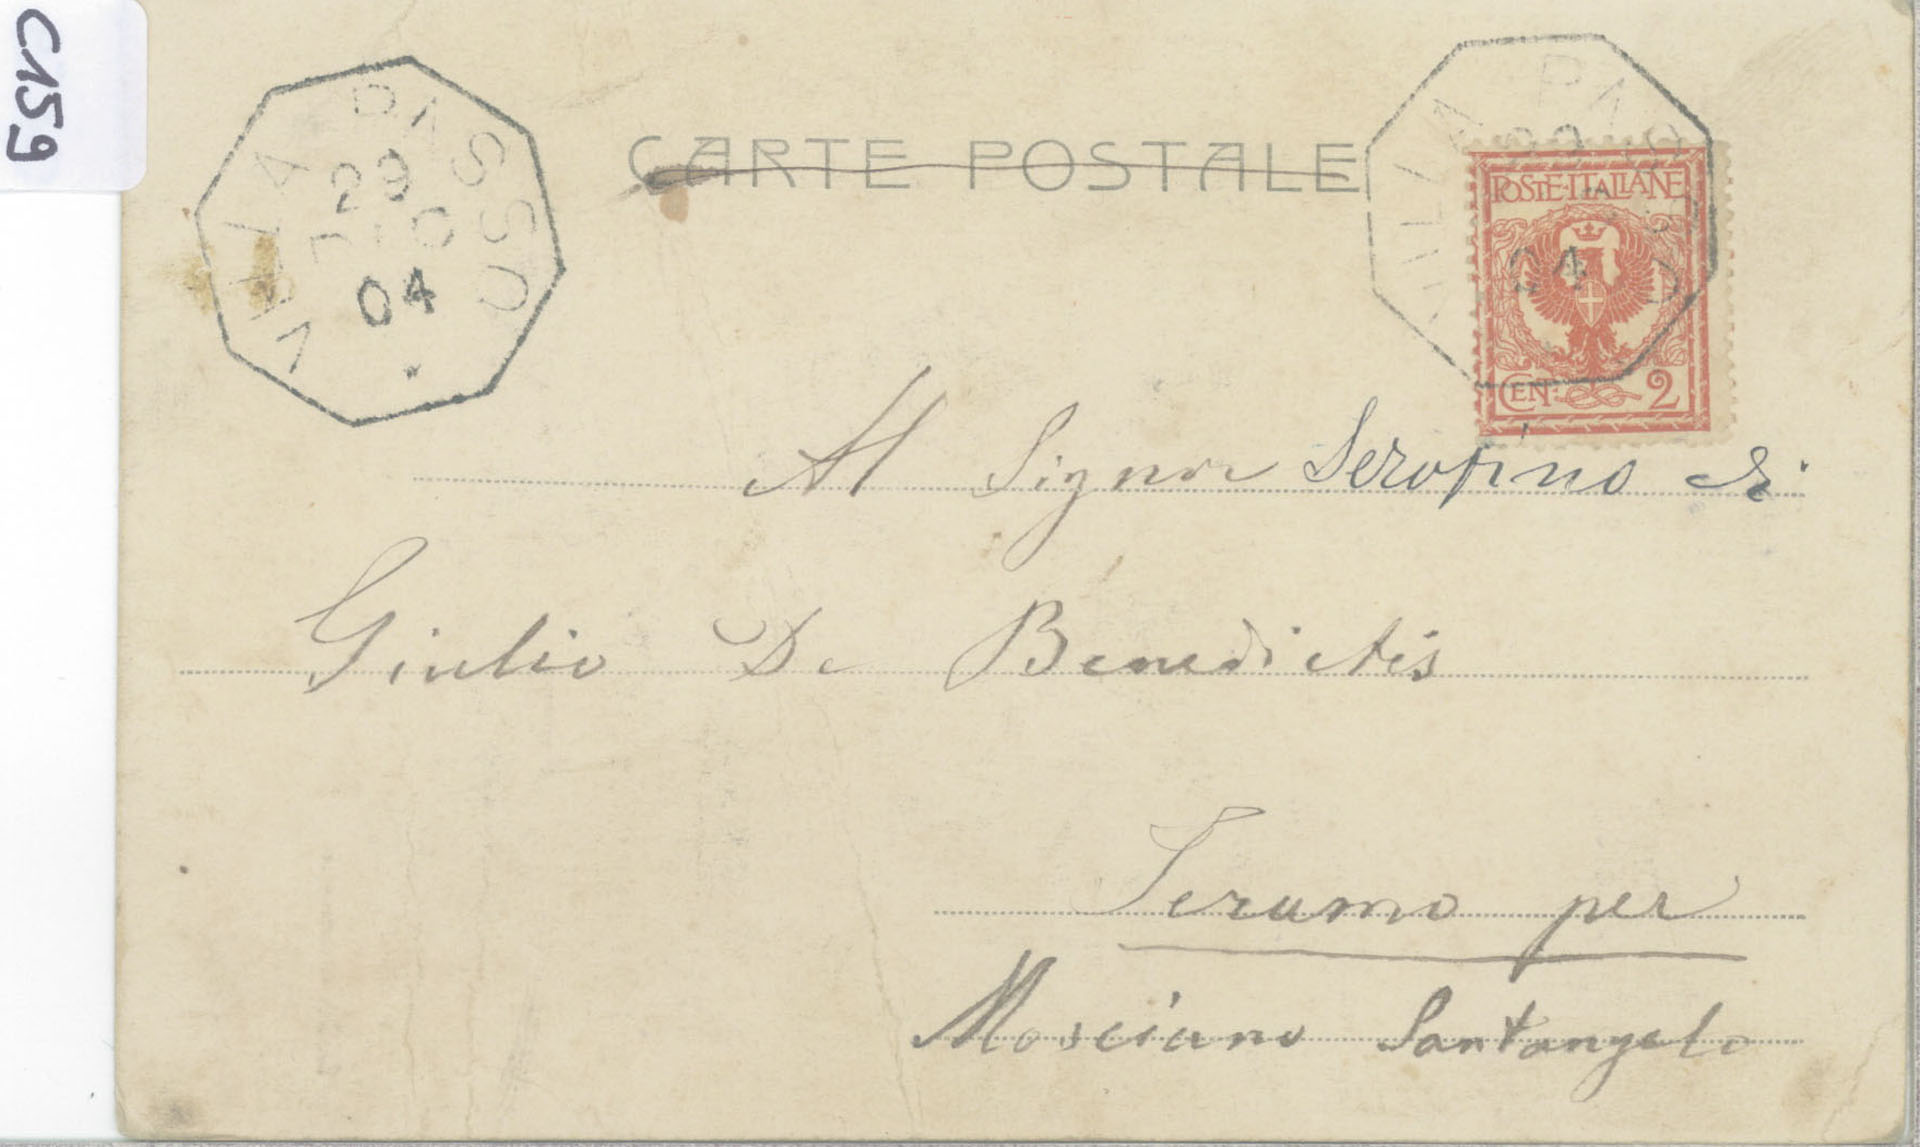 C159
VILLA PASSO
29
DIC
04
CARTE POSTALE
VILLA PASSO
29
04
POSTE·ITALIANE
CENT. 2
Al Signor Serafino di
Giulio De Benedictis
Teramo per
Mosciano Santangelo